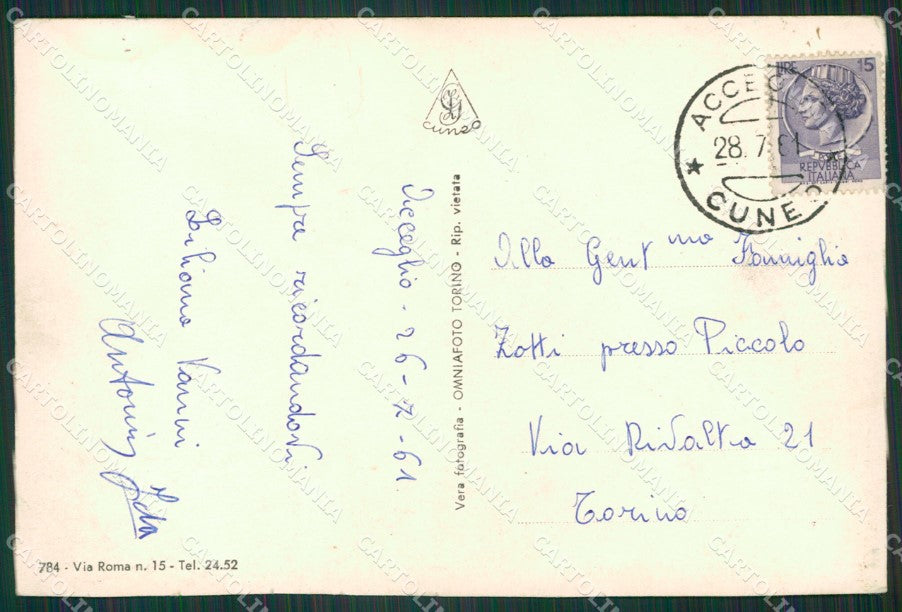 Acceglio - 26-7-61
Sempre ricordandoVi
Liliana Vanni
Antonio Ida
SL
CUNEO
Vera fotografia - OMNIAFOTO TORINO - Rip. vietata
LIRE 15
REPVBBLICA
ITALIANA
28.7.61
CUNEO
Alla Gent ma Famiglia
Zotti presso Piccolo
Via Rivalta 21
Torino
784 - Via Roma n. 15 - Tel. 24.52
CARTOLINOMANIA